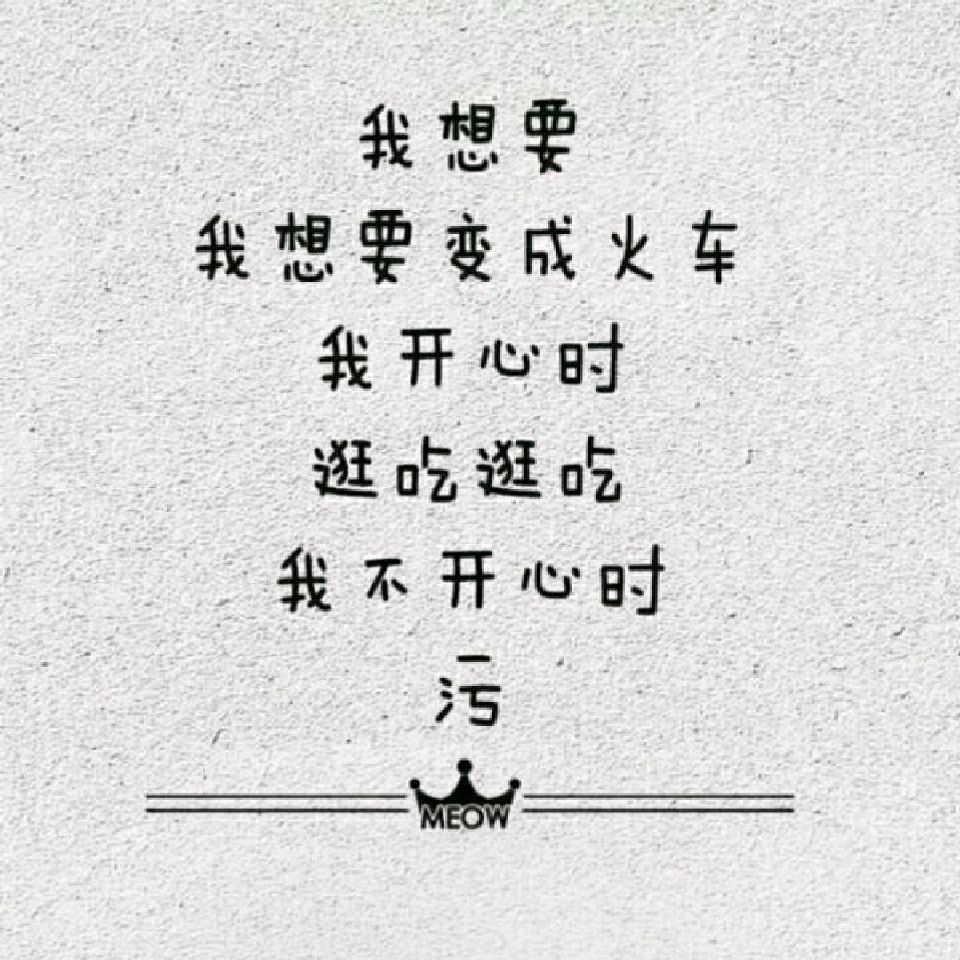 我想要
我想要变成火车
我开心时
逛吃逛吃
我不开心时
污
MEOW